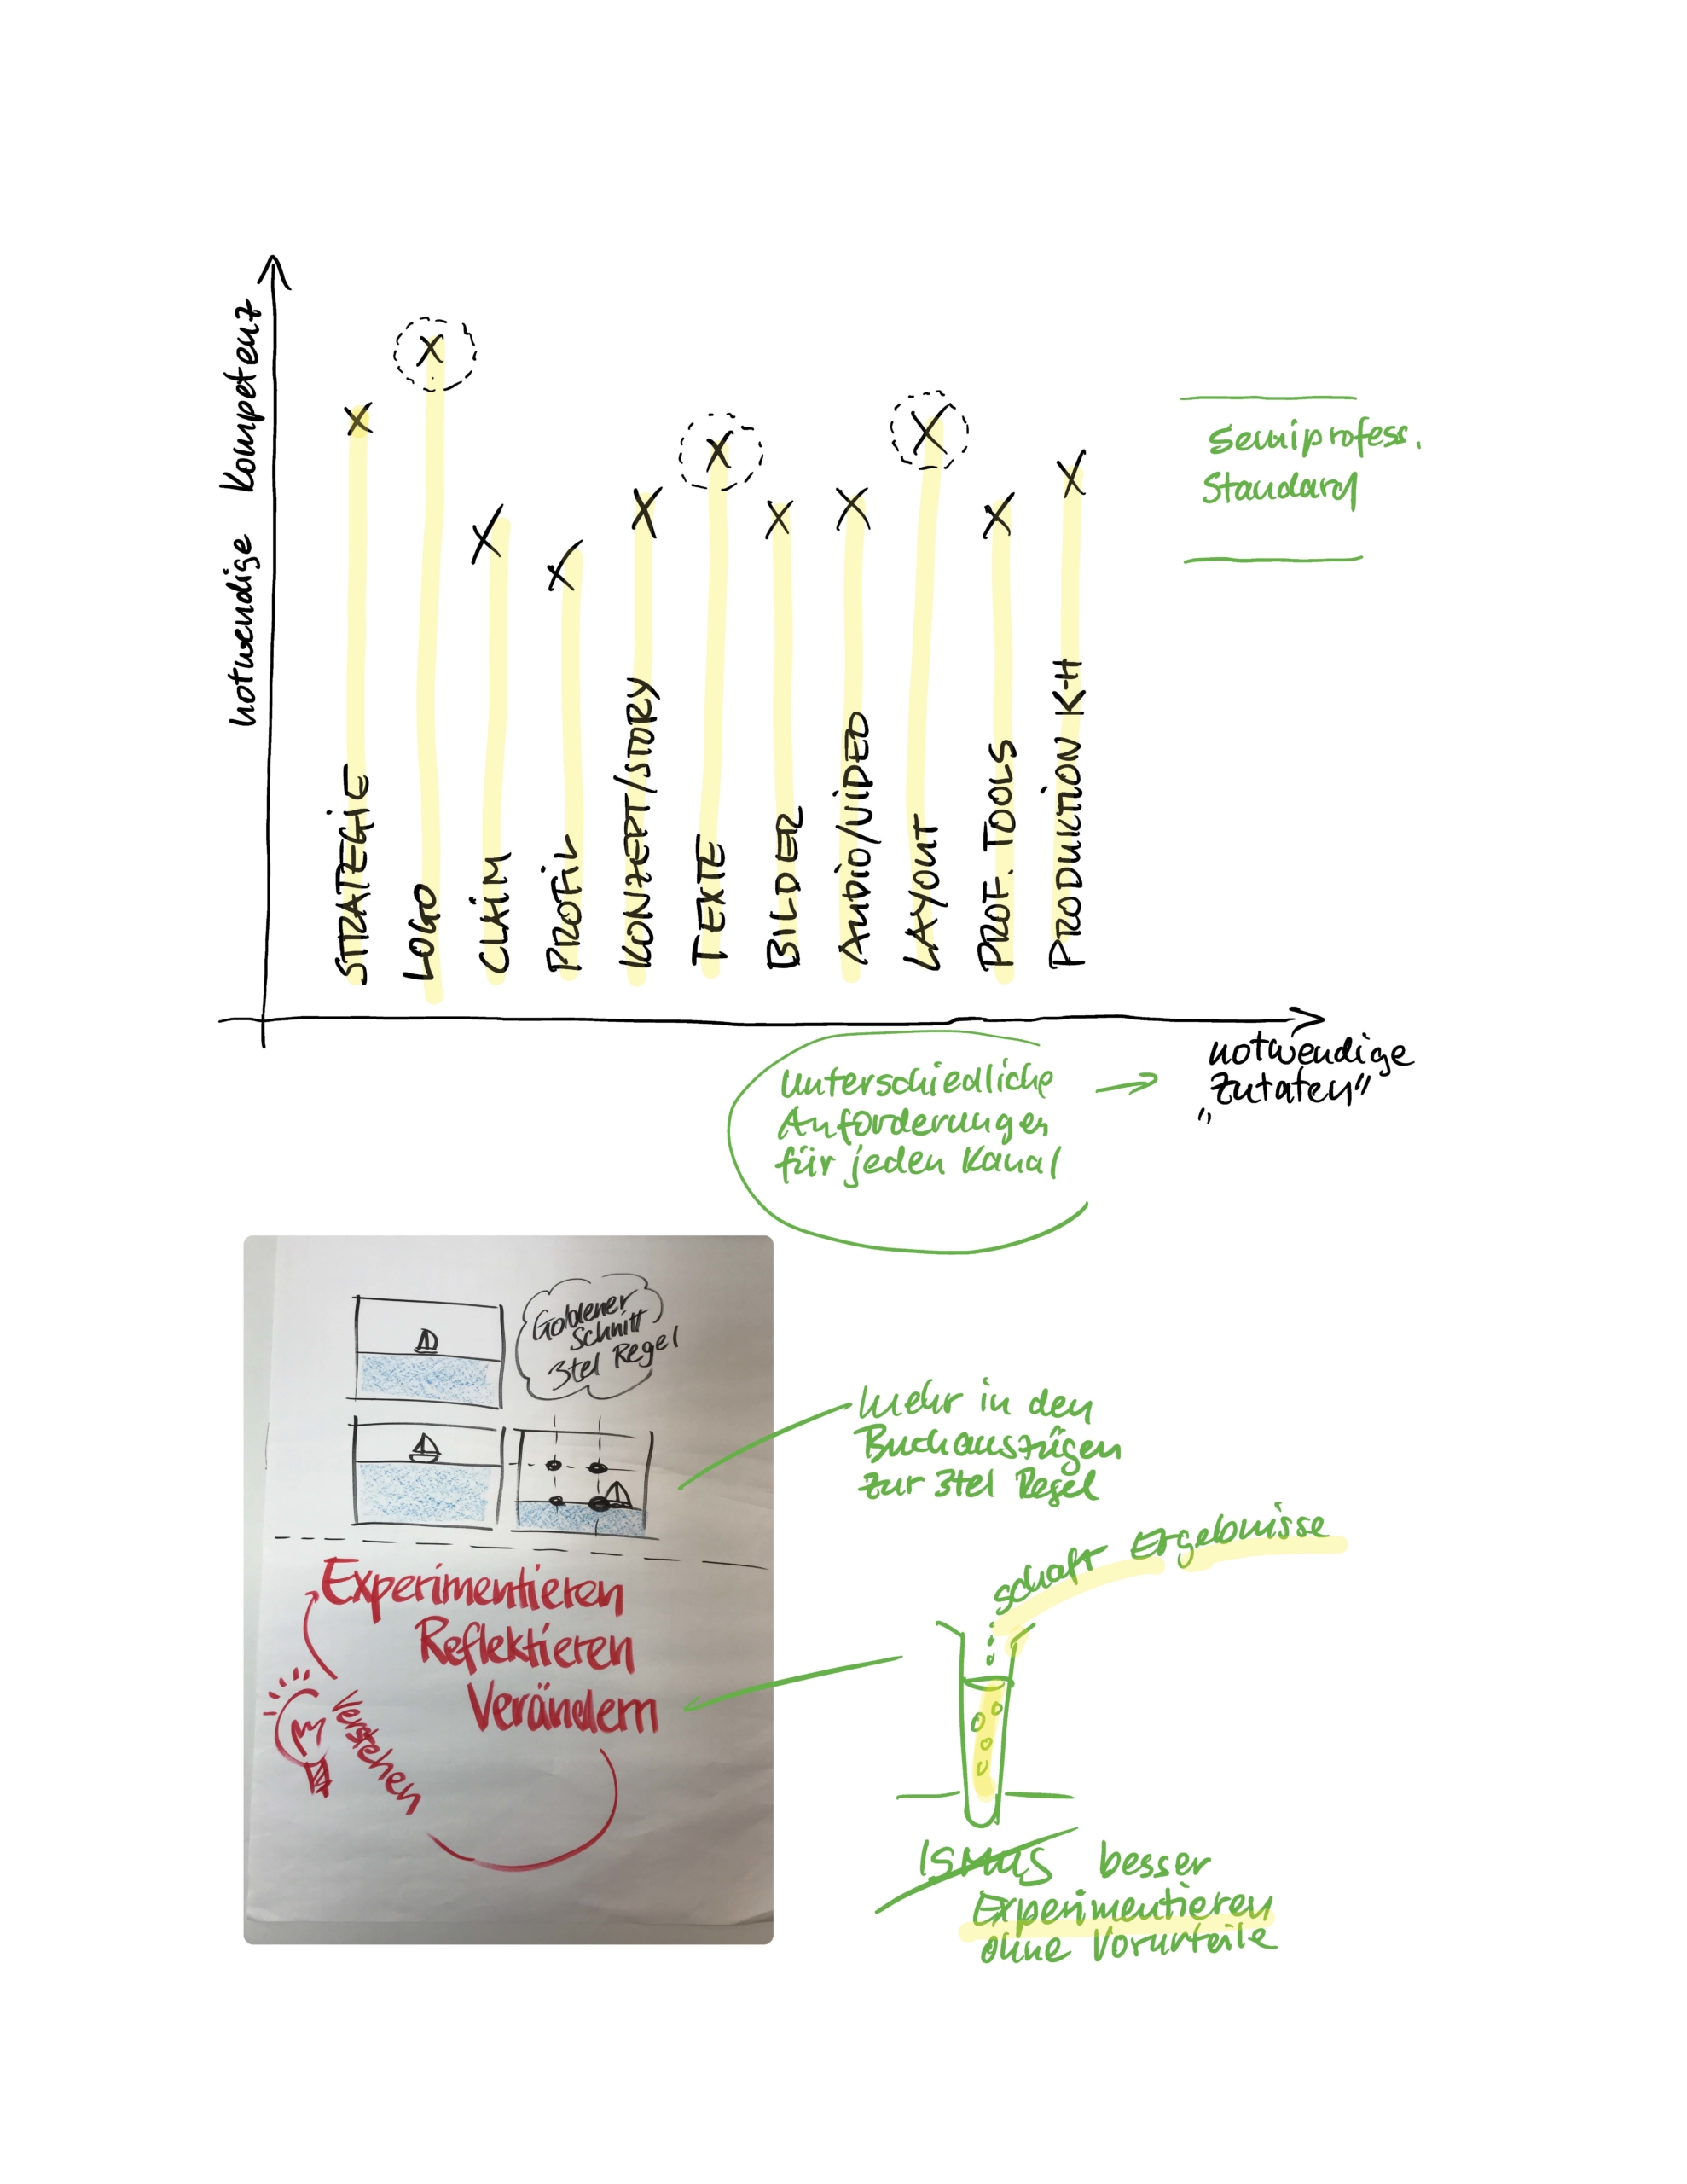 notwendige Kompetenz
STRATEGIE
LOGO
CLAIM
PROFIL
KONZEPT/STORY
TEXTE
BILDER
AUDIO/VIDEO
LAYOUT
PROF. TOOLS
PRODUKTION K+H
Semiprofess.
Standard
notwendige
„Zutaten"
Unterschiedliche
Anforderungen
für jeden Kanal
Goldener
Schnitt,
3tel Regel
mehr in den
Buchauszügen
zur 3tel Regel
Experimentieren
Reflektieren
Verändern
Verstehen
schaft Ergebnisse
ISMUS besser
Experimentieren
ohne Vorurteile